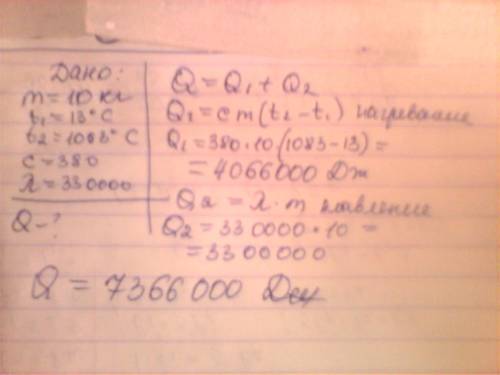 Дано:
m = 10 кг
t₁ = 13° C
t₂ = 1083° C
c = 380
λ = 330000
Q - ?
Q = Q₁ + Q₂
Q₁ = cm(t₂ - t₁) нагревание
Q₁ = 380·10(1083-13) =
= 4066000 Дж
Q₂ = λ·m плавление
Q₂ = 330000·10 =
= 3300000
Q = 7366000 Дж